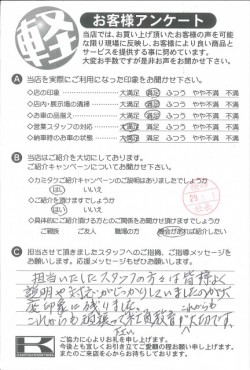 軽
お客様アンケート
当店では、お買い上げ頂いたお客様の声を可能
な限り現場に反映し、お客様により良い商品と
サービスを提供する事に努めています。
大変お手数ですが是非お声をお聞かせ下さい。
A 当店を実際にご利用になった印象をお聞かせ下さい。
◇店の印象 大満足 満足 ふつう やや不満 不満
◇店内・展示場の清掃 大満足 満足 ふつう やや不満 不満
◇お車の品揃え 大満足 満足 ふつう やや不満 不満
◇営業スタッフの対応 大満足 満足 ふつう やや不満 不満
◇納車時のお車の状態 大満足 満足 ふつう やや不満 不満
B 当店はご紹介を大切にしております。
ご紹介キャンペーンについてお聞かせ下さい。
◇カミタケご紹介キャンペーンのご説明はありましたでしょうか
はい いいえ
◇ご紹介を頂けますでしょうか
はい いいえ
◇具体的にご紹介頂ける方との関係をお聞かせ頂けますでしょうか
ご親族 ご友人 職場の方 機会があれば紹介したい
C 担当させて頂きましたスタッフへのご指摘、ご指導メッセージを
お願いします。応援メッセージもぜひお願いします。
担当いたしたスタッフの方々は皆様よく
説明や対応がしっかりしていましたので
印象に残りました。これからも
K
ご協力に心よりお礼を申し上げます。
今後とも宜しくお引き立てご愛顧の程お願い申し上げます。
またのご来店を心からお待ちしております。